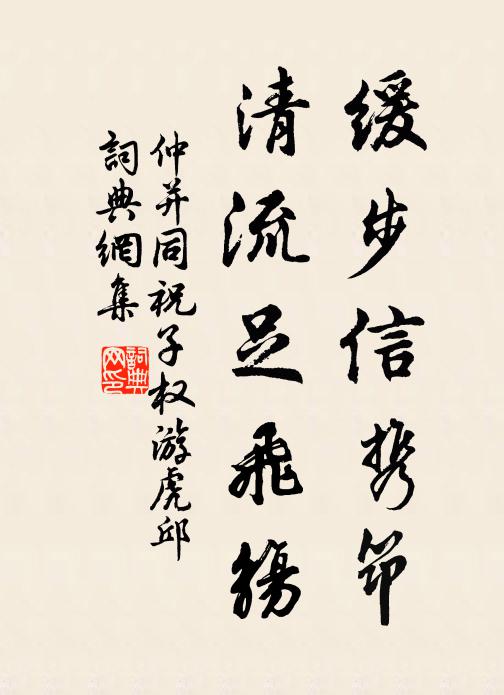 缓步信携筇
清流足飛觴
仲并同祝子权游虎邱
詞典網集
詞典网印